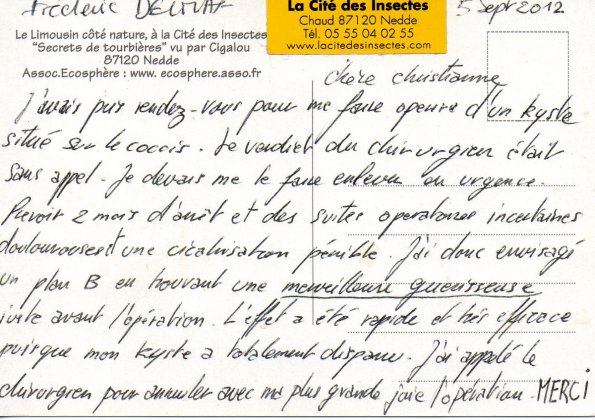 Frédéric
La Cité des Insectes
Chaud 87120 Nedde
Tél. 05 55 04 02 55
www.lacitedesinsectes.com
5 Sept 2012
Le Limousin côté nature, à la Cité des Insectes
"Secrets de tourbières" vu par Cigalou
87120 Nedde
Assoc.Ecosphère : www. ecosphere.asso.fr
Chère Christianne
J'avais pris rendez-vous pour me faire opérer d'un kyste
situé sur le coccis. Le verdict du chirurgien était
sans appel. Je devais me le faire enlever en urgence.
Prévoir 2 mois d'arrêt et des suites opératoires incertaines
douloureuses et une cicatrisation pénible. J'ai donc envisagé
un plan B en trouvant une merveilleuse guérisseuse
juste avant l'opération. L'effet a été rapide et très efficace
puisque mon kyste a totalement disparu. J'ai appelé le
chirurgien pour annuler avec ma plus grande joie l'opération. MERCI